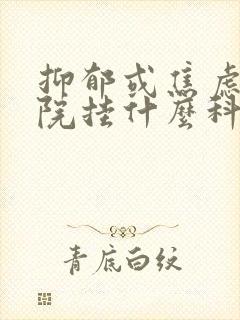 抑郁或焦虑
院挂什麼科
青底白纹